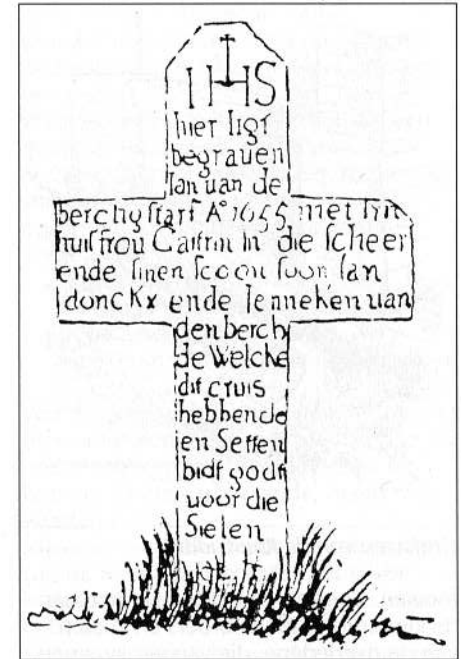 IHS
hier ligt
begrauen
Ian uan de
berch gstarf A° 1655 met syn
huisfrou Catrin In die scheer
ende sinen scoon soon Ian
donckx ende Ienneken uan
den berch
de Welche
dit cruis
hebben de
en Setten
bidt godt
uoor die
Sielen